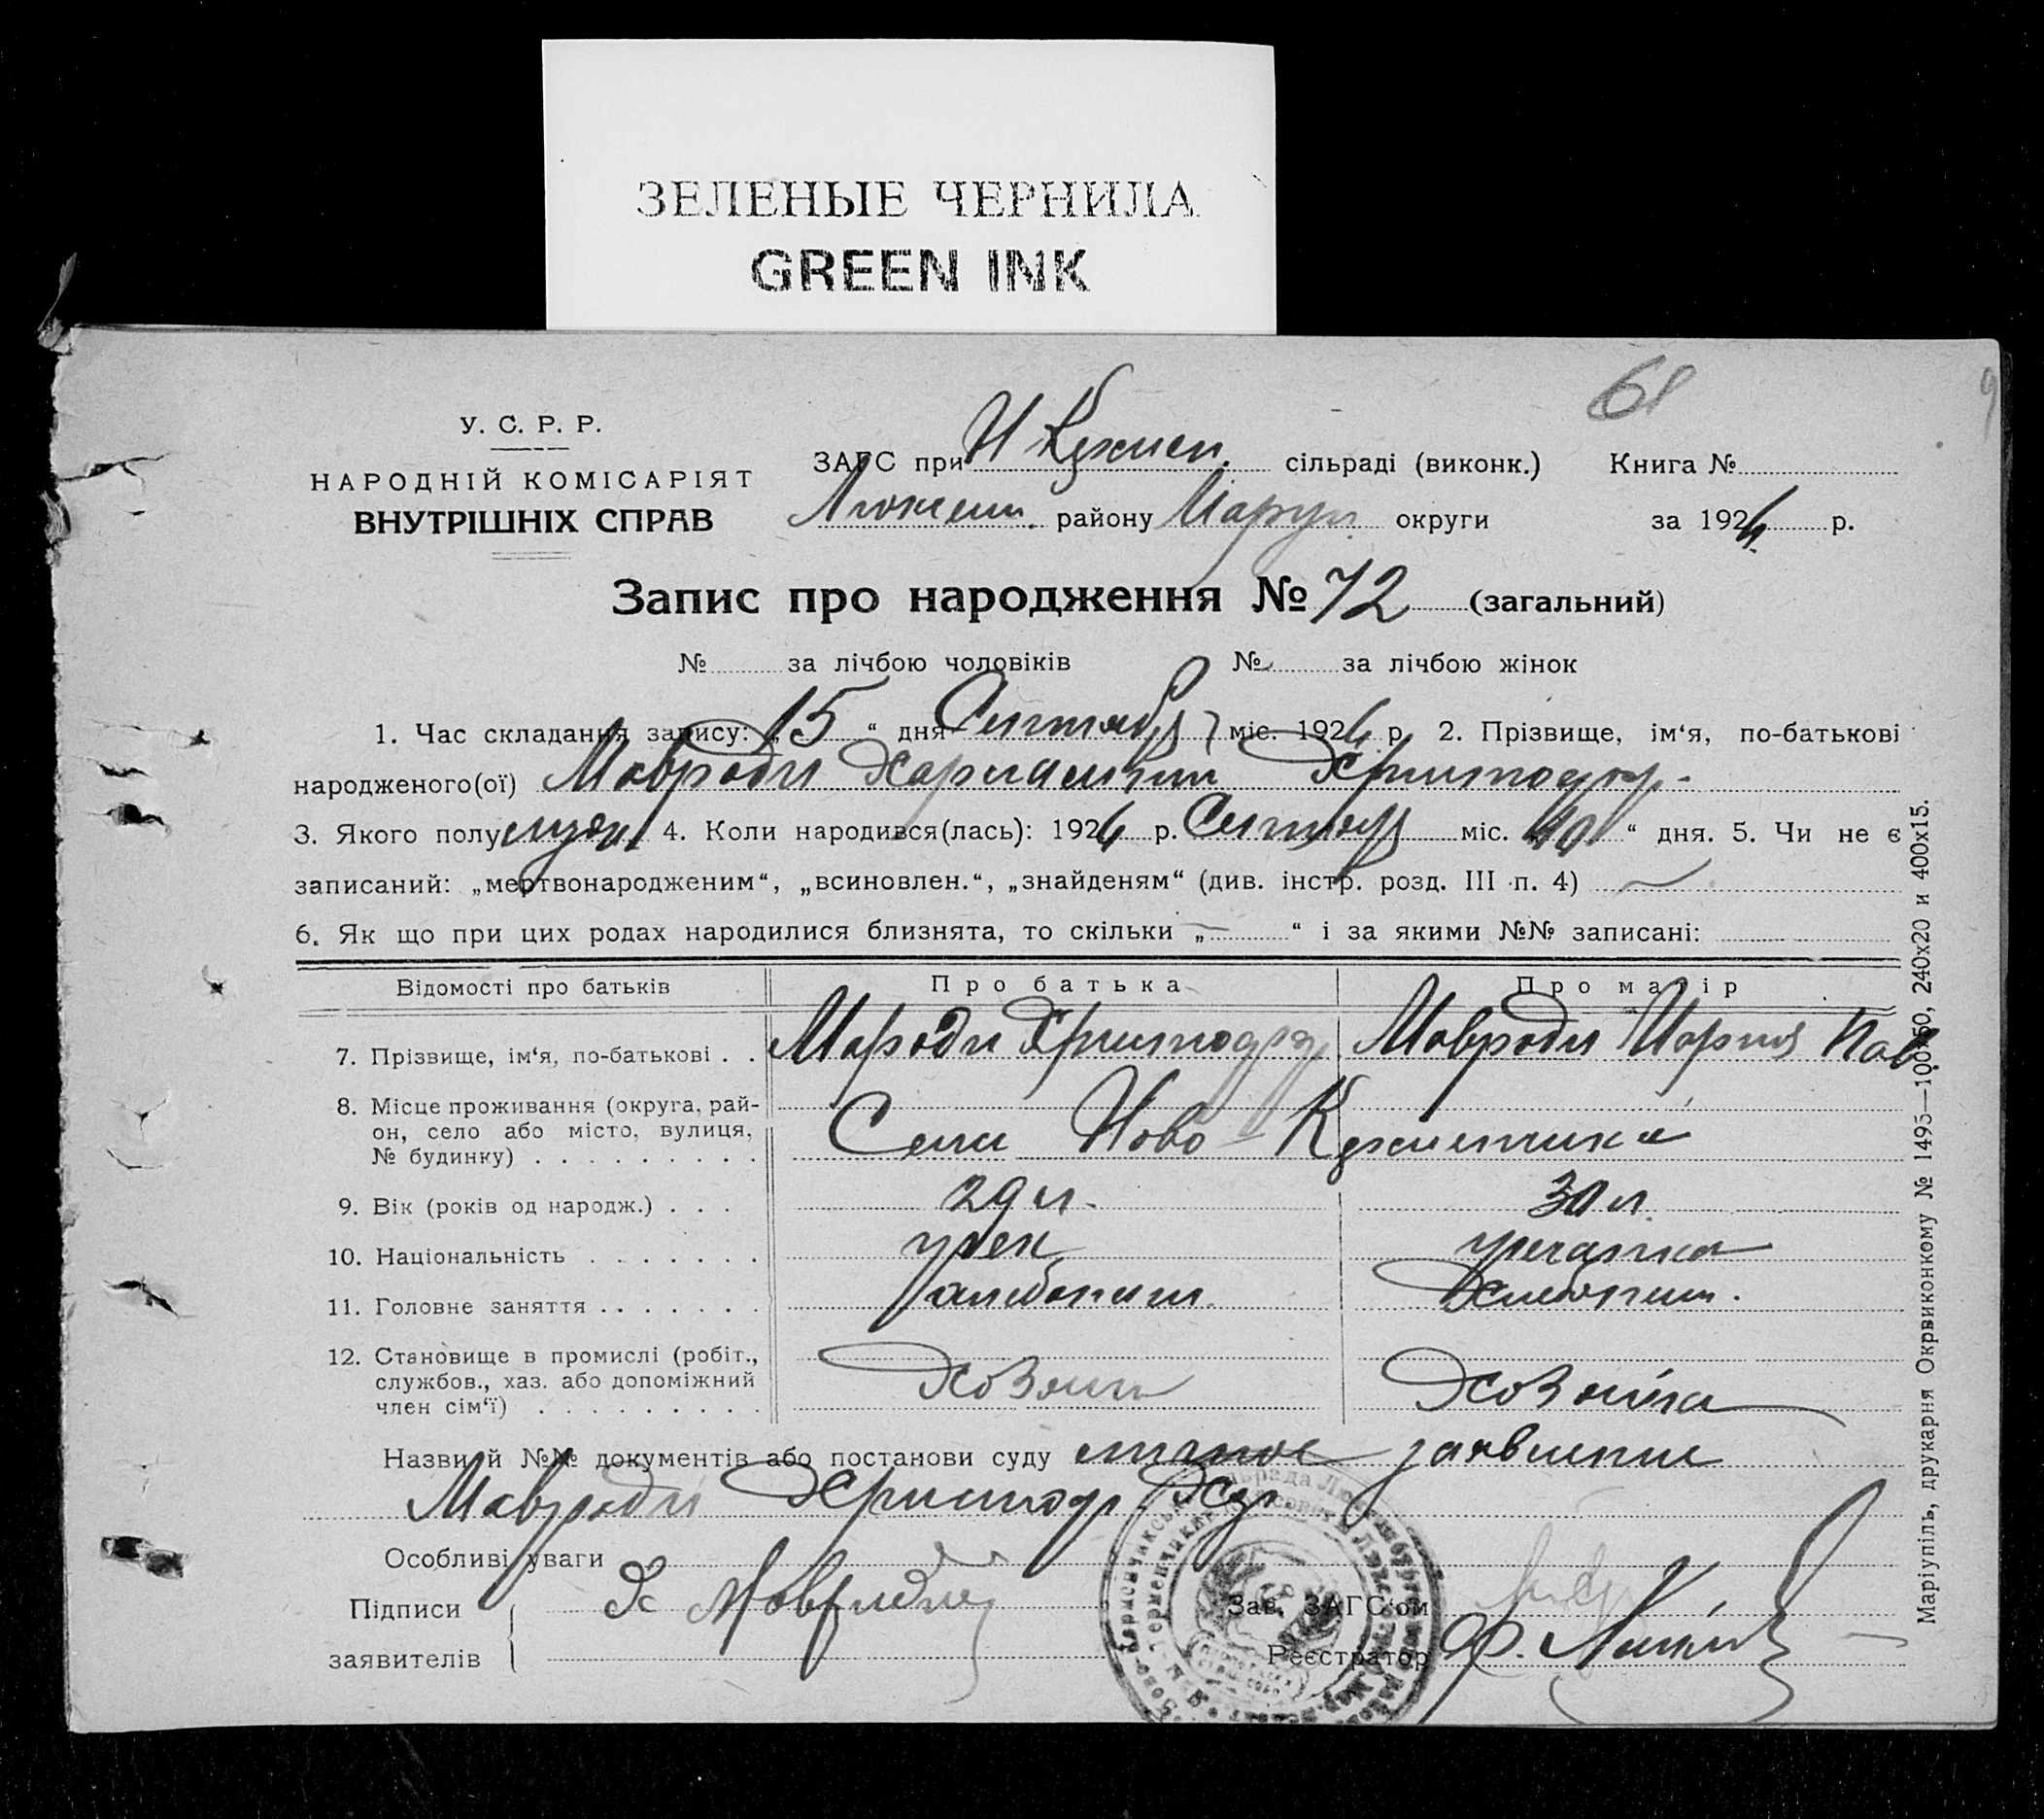 ЗЕЛЕНЫЕ ЧЕРНИЛА
GREEN INK
68
У. С. Р. Р.
НАРОДНІЙ КОМІСАРІЯТ
ВНУТРІШНІХ СПРАВ
ЗАГС при Н Кермен. сільраді (виконк.) Книга №
района Марiуп. округи за 1926 р.
Запис про народження № 72 (загальний)
№ за лічбою чоловіків № за лічбою жінок
1. Час складання запису: „15“ дня Сентября міс. 1926 р. 2. Прізвище, ім‘я, по-батькові
народженого(ої) Мавроди Харлампий Христофор.
3. Якого полу мужс 4. Коли народився(лась): 1926 р. Сентябр міс. „10“ дня. 5. Чи не є
записаний: „мертвонародженим“, „всиновлен.“, „знайденям“ (див. інстр. розд. III п. 4)
6. Як що при цих родах народилися близнята, то скільки „ “ і за якими №№ записані:
Відомості про батьків Про батька Про матір
7. Прізвище, ім‘я, по-батькові . . Мароди Христофор Мавроди Мария Пав
8. Місце проживання (округа, рай-
он, село або місто, вулиця, Село Ново Керменчика
№ будинку)
9. Вік (років од народж.) . . . 29 л. 30 л.
10. Національність грек гречанка
11. Головне заняття хлебопаш. Хлебопаш.
12. Становище в промислі (робіт.,
службов., хаз. або допоміжний Хозяин Хозяйка
член сім‘ї)
Назви й №№ документів або постанови суду личное заявление
Мавроди Христофор
Особливі уваги
Підписи Х Мавроди Зав. ЗАГС‘ом
заявителів Реєстратор Ф.
Маріупіль, друкарня Окрвиконкому № 1495—100×50, 240х20 и 400х15.